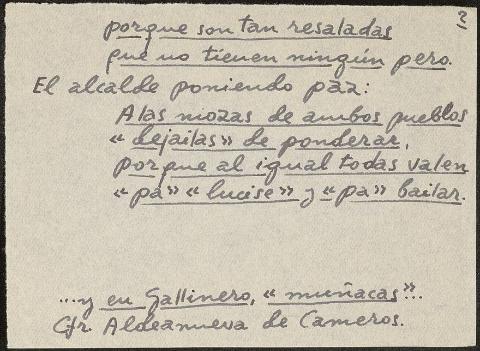 2
porque son tan resaladas
que no tienen ningún pero.
El alcalde poniendo paz:
A las mozas de ambos pueblos
"dejailas" de ponderar,
porque al igual todas valen
"pa" "lucise" y "pa" bailar.
...y en Gallinero, "muñacas"...
Cfr. Aldeanueva de Cameros.